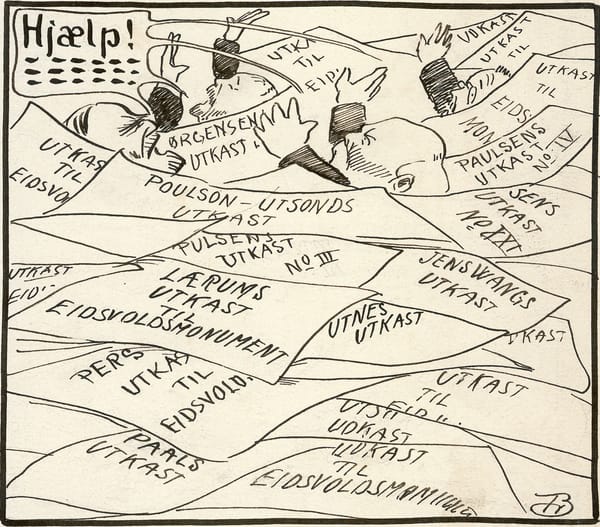 Hjælp!
UTKA
TIL
EID..
UDKAST
UTKAST
TIL
UTKAST
TIL
EIDS
MON
ØRGENSEN
UTKAST
PAULSENS
UTKAST
No. IV
UTKAS
TIL
EIDSVO
POULSON-UTSONDS
UTKAST
SENS
UTKAST
No XXI
PULSENS
UTKAST
No III
UTKAST
EID..
LÆRUMS
UTKAST
TIL
EIDSVOLDSMONUMENT
JENSWANGS
UTKAST
UTNES
UTKAST
KAST
PERS
UTKAS
TIL
EIDSVOLD.
UTKAST
TIL
EID..
UDKAST
PAALS
UTKAST
UDKAST
TIL